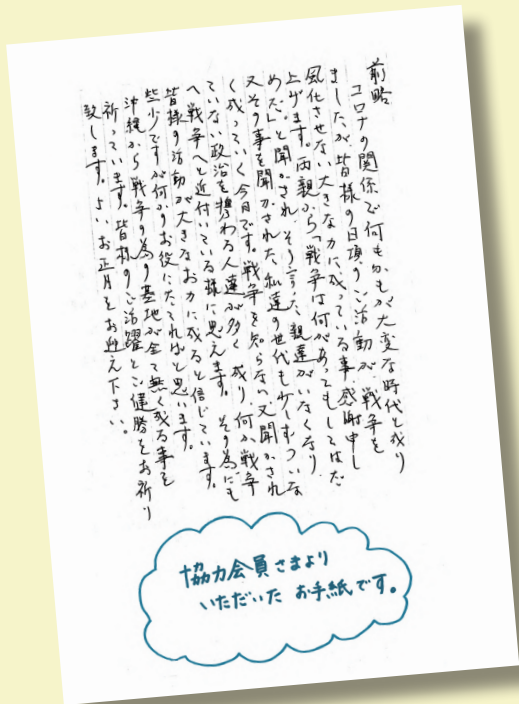 前略
コロナの関係で何もかもが大変な時代と成り
ましたが皆様の日頃のご活動が、戦争を
風化させない大きな力に成っている事、感謝申し
上げます。両親から「戦争は何があってもしてはだ
めだ」と聞かされ、そう言った親達がいなくなり、
又その事を聞かされた私達の世代も少しずついな
く成っていく今日です。戦争を知らない、又聞かされ
ていない政治を携わる人達が多く成り、何か戦争
へ戦争へと近付いている様に思えます。その為にも
皆様の活動が大きなお力に成ると信じています。
些少ですが何かのお役にたてればと思います。
沖縄から戦争の為の基地が全て無く成る事を
祈っています。皆様のご活躍とご健勝をお祈り
致します。よいお正月をお迎え下さい。
協力会員さまより
いただいた お手紙です。